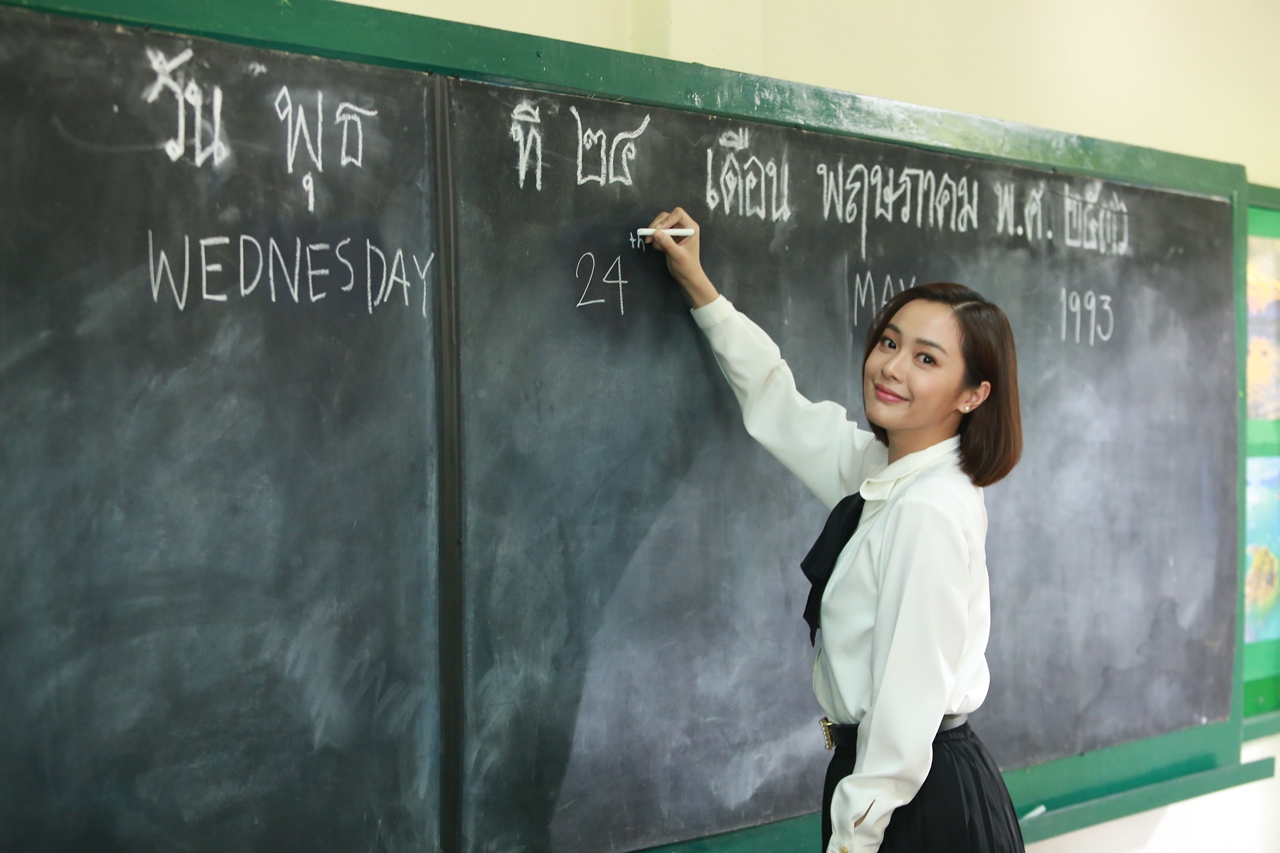 วัน พุธ ที่ ๒๔ เดือน พฤษภาคม พ.ศ. ๒๕๓๖
WEDNESDAY 24th MAY 1993